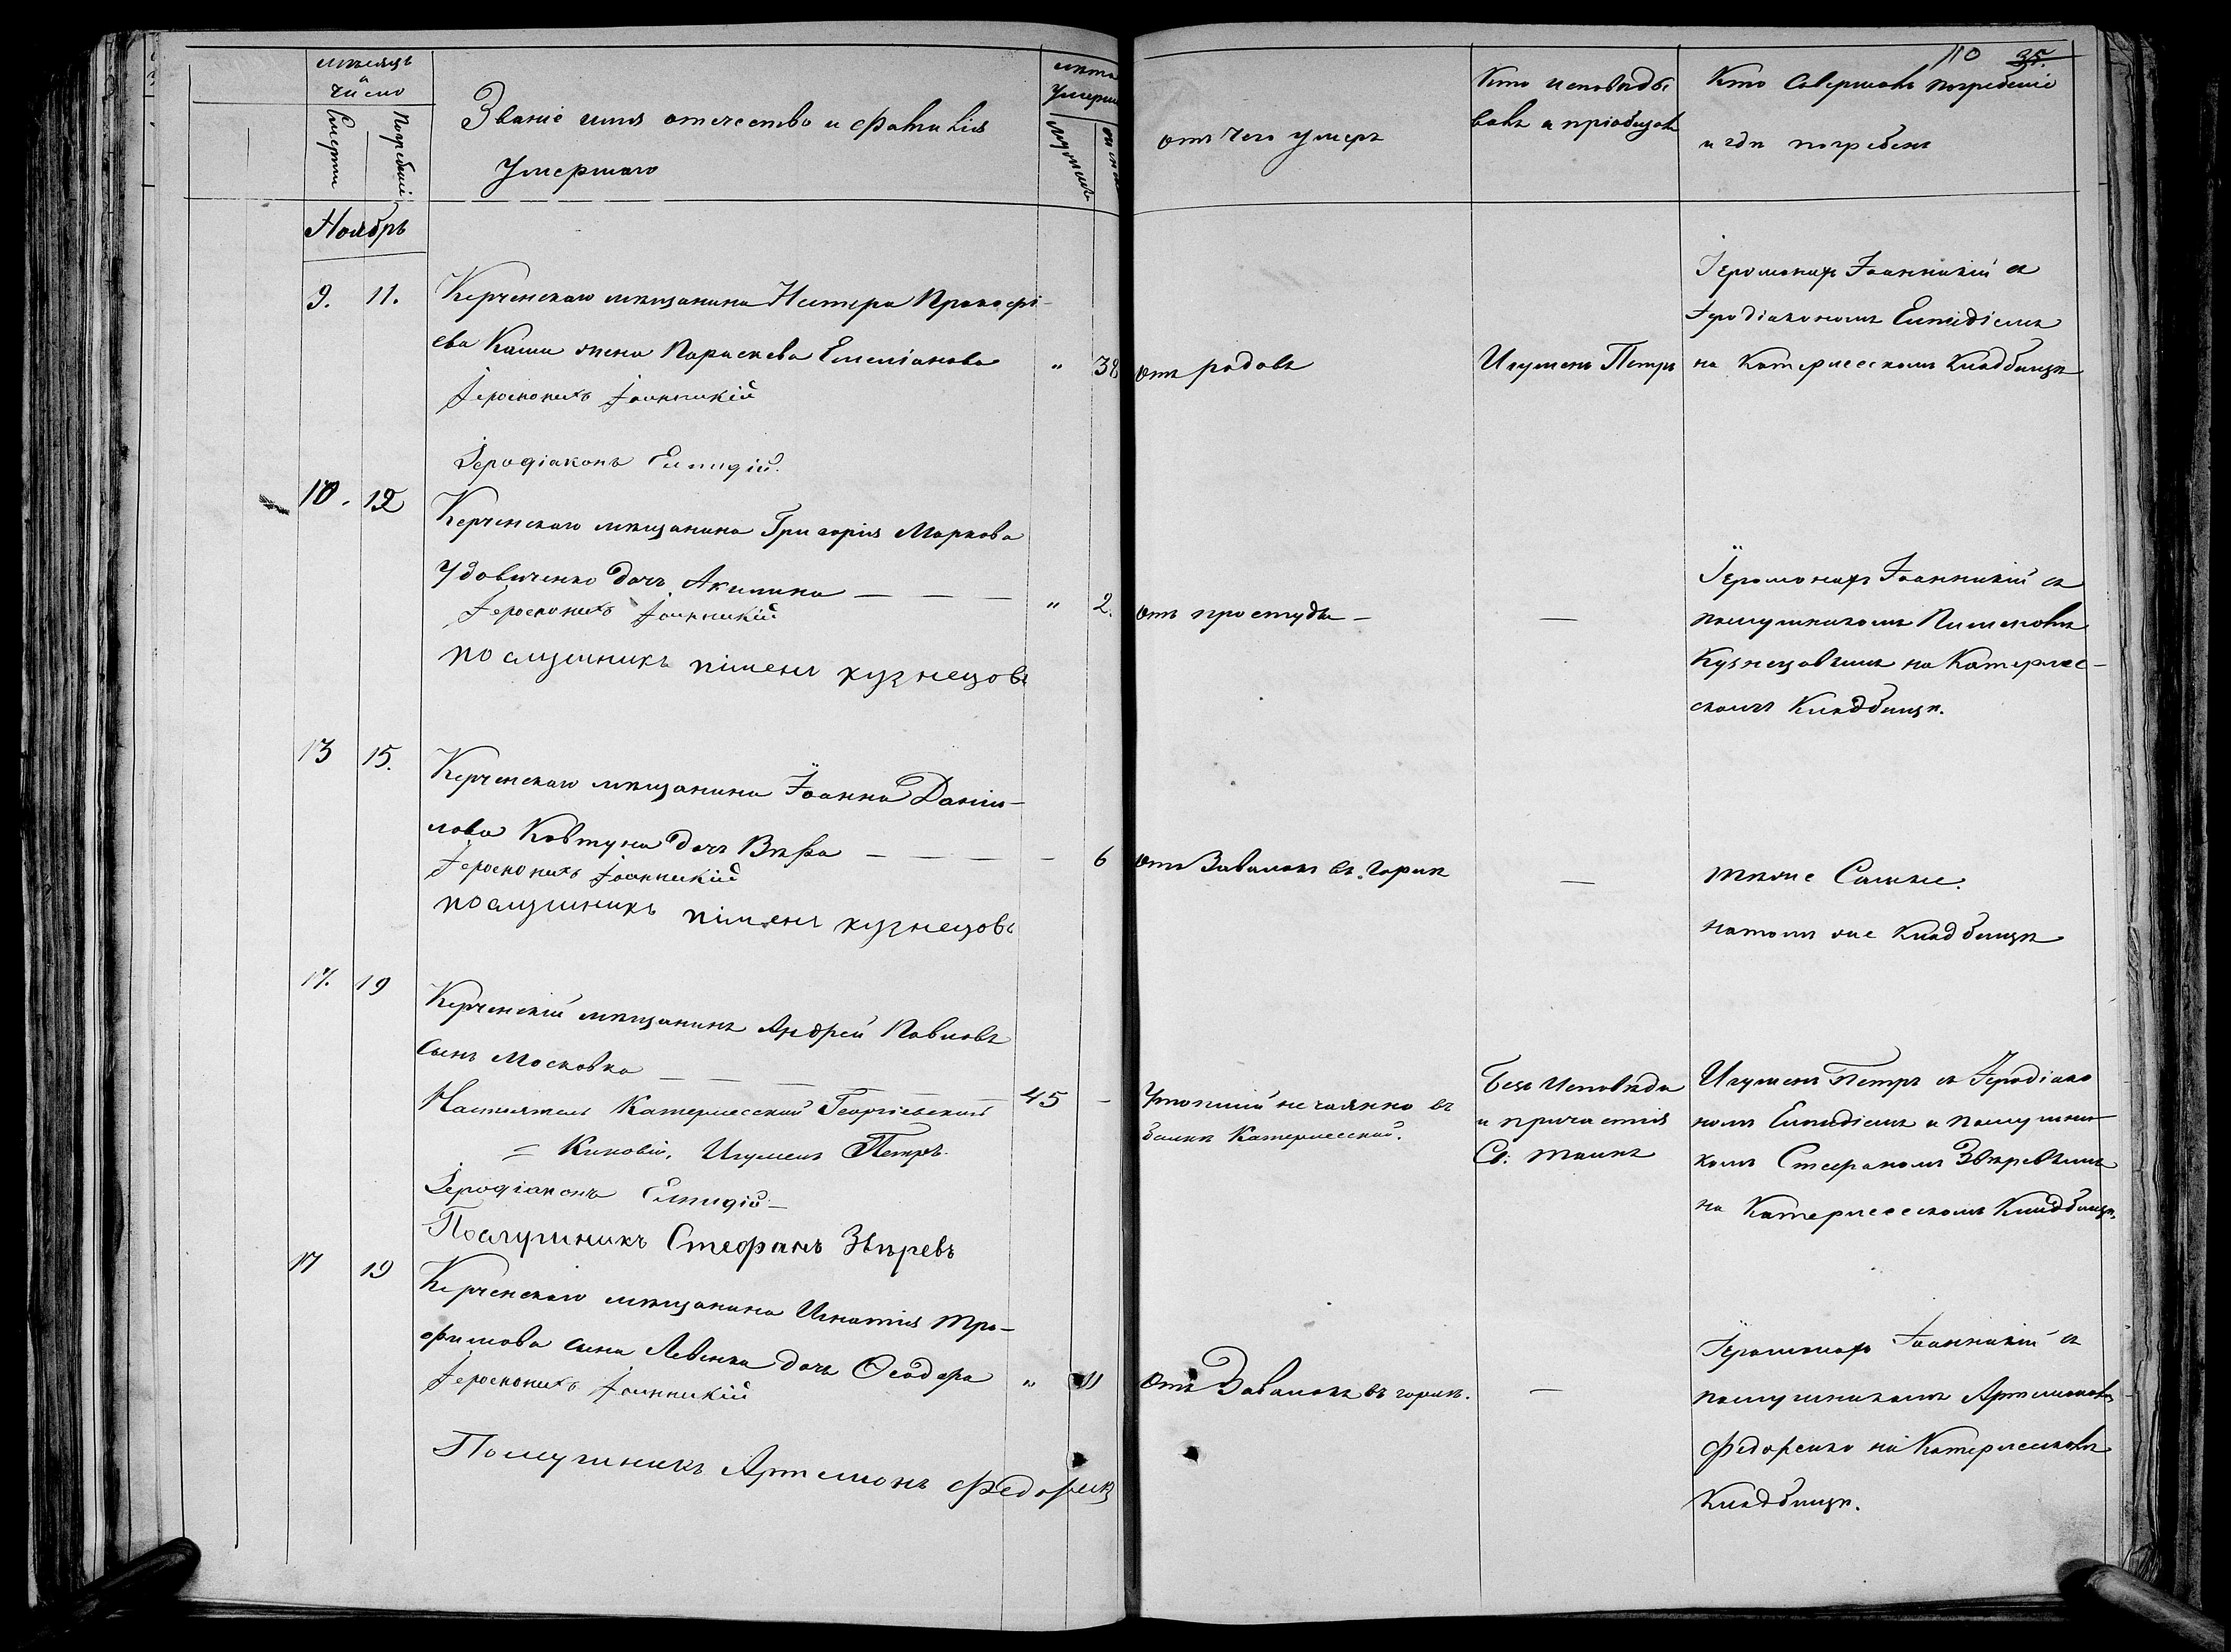 110 35.
мѣсяцъ
и
число
Смерти
Погребенiе
Званiе имя отечество и фамилiя
Умершаго
лѣта
Умерш
Мужеск
отъ чего умеръ
Кто исповѣды
валъ и прiобщалъ
Кто Совершалъ погребенiе
и гдѣ погребенъ
Ноябрь
9. 11.
Керченскаго мѣщанина Нестера Прокофi-
ева Каши жена Параскева Емелiанова
" 38
Iеромонахъ Iоанникiй
Iеродiаконъ Елпидiй.
отъ родовъ
Игуменъ Петръ
Iеромонахъ Iоанникiй съ
Iеродiакономъ Елпидiемъ
на Катерлесскомъ Кладбищѣ
10. 12
Керченскаго мѣщанина Григорiя Маркова
Удовиченко дочь Акилина — — —
" 2.
Iеромонахъ Iоанникiй
послушникъ пiменъ кузнецовъ
отъ простуды —
—
Iеромонахъ Iоанникiй съ
послушникомъ Пименовъ
Кузнецовымъ на Катерлес-
скомъ Кладбищѣ.
13 15.
Керченскаго мѣщанина Iоанна Данiи-
лова Ковтуна дочь Вѣра — — — —
6
Iеромонахъ Iоанникiй
послушникъ пiменъ кузнецовъ
отъ Завалокъ въ горлѣ
—
тѣже Самые.
натомъ же Кладбищѣ
17. 19
Керченскiй мѣщанинъ Андрей Павловъ
Сынъ Московка — — —
45 —
Настоятель Катерлесской Георгiевской
= Киновiи, Игуменъ Петръ.
Iеродiаконъ Елпидiй —
Послушникъ Стефанъ Звѣревъ
Утопшiй нечаянно въ
балкѣ Катерлесской.
Безъ Исповѣди
и причастiя
Св: таинъ
Игуменъ Петръ съ Iеродiако
номъ Елпидiемъ и послушни
комъ Стефаномъ Звѣревымъ
на Катерлесскомъ Кладбищѣ.
17 19
Керченскаго мѣщанина Игнатiя Тро-
фимова сына Левенка дочь Ѳеодора
" 11
Iеромонахъ Iоанникiй
Послушникъ Артемонъ Федоренко
отъ Завалокъ въ горлѣ.
—
Iеромонахъ Iоанникiй съ
послушникомъ Артемономъ
Федоренко на Катерлесскомъ
Кладбищѣ.